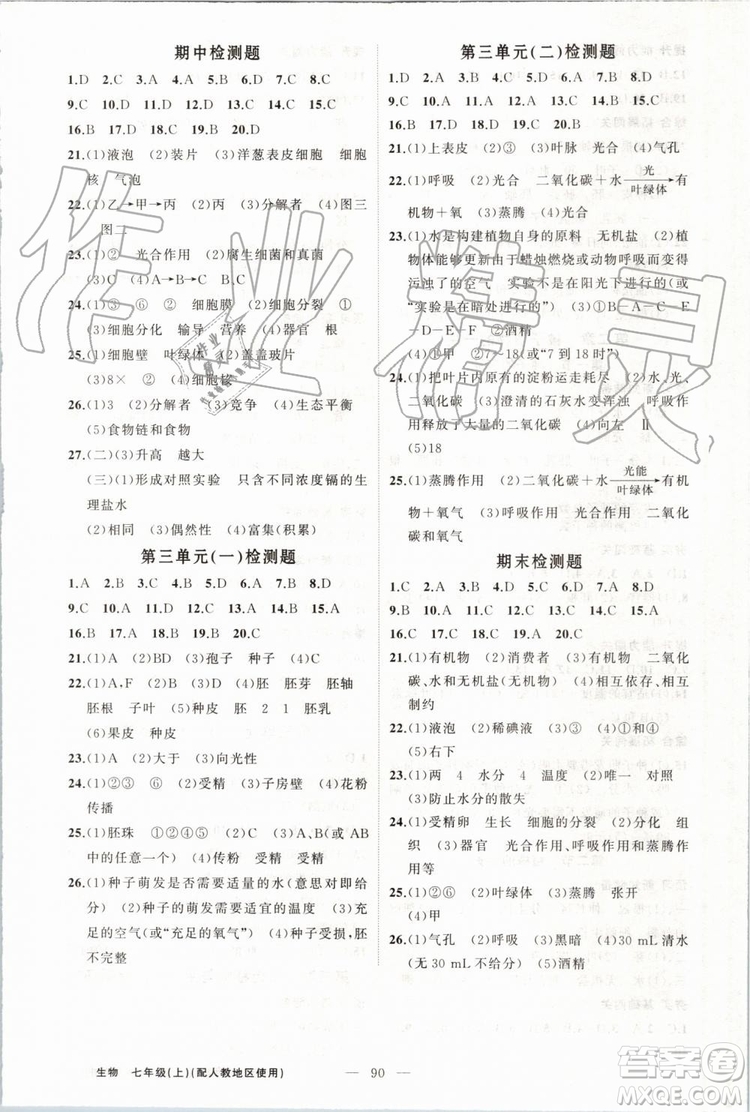 期中检测题
1.D 2.C 3.A 4.A 5.B 6.B 7.D 8.C
9.C 10.D 11.C 12.B 13.C 14.C 15.C
16.B 17.D 18.D 19.B 20.D
21.(1)液泡 (2)装片 (3)洋葱表皮细胞 细胞
核 气泡
22.(1)乙→甲→丙 (2)丙 (3)分解者 (4)图三
图二
23.(1)①② 光合作用 (2)腐生细菌和真菌
(3)C (4)A→B→C
24.(1)③ ⑥ ② 细胞膜 (2)细胞分裂 ①
(3)细胞分化 输导 营养 (4)器官 根
25.(1)细胞壁 叶绿体 (2)盖盖玻片
(3)8× ② ④细胞核
26.(1)3 (2)分解者 (3)竞争 (4)生态平衡
(5)食物链和食物
27.(二)(3)升高 越大
(三)(1)形成对照实验 只含不同浓度镉的生
理盐水
(2)相同 (3)偶然性 (4)富集(积累)
第三单元(一)检测题
1.A 2.B 3.C 4.B 5.D 6.A 7.B 8.D
9.C 10.C 11.B 12.C 13.B 14.B 15.A
16.B 17.D 18.B 19.B 20.C
21.(1)A (2)BD (3)孢子 种子 (4)C
22.(1)A,F (2)B (3)E (4)胚 胚芽 胚轴
胚根 子叶 (5)种皮 胚 2 1 胚乳
(6)果皮 种皮
23.(1)A (2)大于 (3)向光性
24.(1)①②③ ⑥ (2)受精 (3)子房壁 (4)花粉
传播
25.(1)胚珠 (2)①→③→② (3)AB(或 AB
中的任意一个) (4)传粉 受精 受精
26.(1)种子萌发是否需要适量的水(意思对即给
分) (2)种子的萌发需要适宜的温度 (3)充
足的空气(或“充足的氧气”) (4)种子受损,胚
不完整
第三单元(二)检测题
1.D 2.A 3.C 4.B 5.D 6.C 7.D 8.D
9.C 10.C 11.B 12.D 13.B 14.B 15.C
16.B 17.B 18.C 19.D 20.B
21.(1)上表皮 (2)③ (3)叶脉 (4)气孔
22.(1)呼吸 (2)光合 二氧化碳+水 光/叶绿体→ 有
机物+氧 (3)蒸腾 (4)光合
23.(1)水是构建植物自身的原料 无机盐 (2)植
物体能够更新由于蜡烛燃烧或动物呼吸而变得
污浊了的空气 实验是在阳光下进行的(或
“实验是在暗处进行的”) (3)①B—A—C—E—
D—E—F ②酒精
(4)①甲 ②7~18(或“7 到 18 时”)
24.(1)把叶片内原有的淀粉运走耗尽 (2)水、光、
二氧化碳 (3)澄清的石灰水变浑浊 呼吸作
用释放了大量的二氧化碳 (4)向左 Ⅱ
(5)18
25.(1)蒸腾作用 (2)二氧化碳+水 光能/叶绿体→ 有机
物+氧气 (3)呼吸作用 (4)有机物 二氧化碳
和氧气
期末检测题
1.C 2.A 3.C 4.D 5.C 6.B 7.C 8.D
9.B 10.A 11.D 12.C 13.D 14.C 15.A
16.C 17.D 18.C 19.A 20.C
21.(1)有机物 (2)消费者 (3)有机物 二氧化
碳、水和无机盐(无机物) (4)相互依存、相互
制约
22.(1)液泡 (2)稀碘液 (3)③ (4)①—④—②
(5)右下
23.(1)两 4 水分 4 温度 (2)唯一 对照
(3)防止水分的散失
24.(1)受精卵 生长 细胞的分裂 (2)分化 组
织 (3)器官 光合作用、呼吸作用和蒸腾
作用等
25.(1)②⑥ (2)叶绿体 (3)蒸腾 张开
(4)甲
26.(1)气孔 (2)呼吸 (3)黑暗 (4)30 mL 清水
(无 30 mL 不给分) (5)酒精
生物 七年级(上)(配人教地区使用)
— 90 —
作业精灵